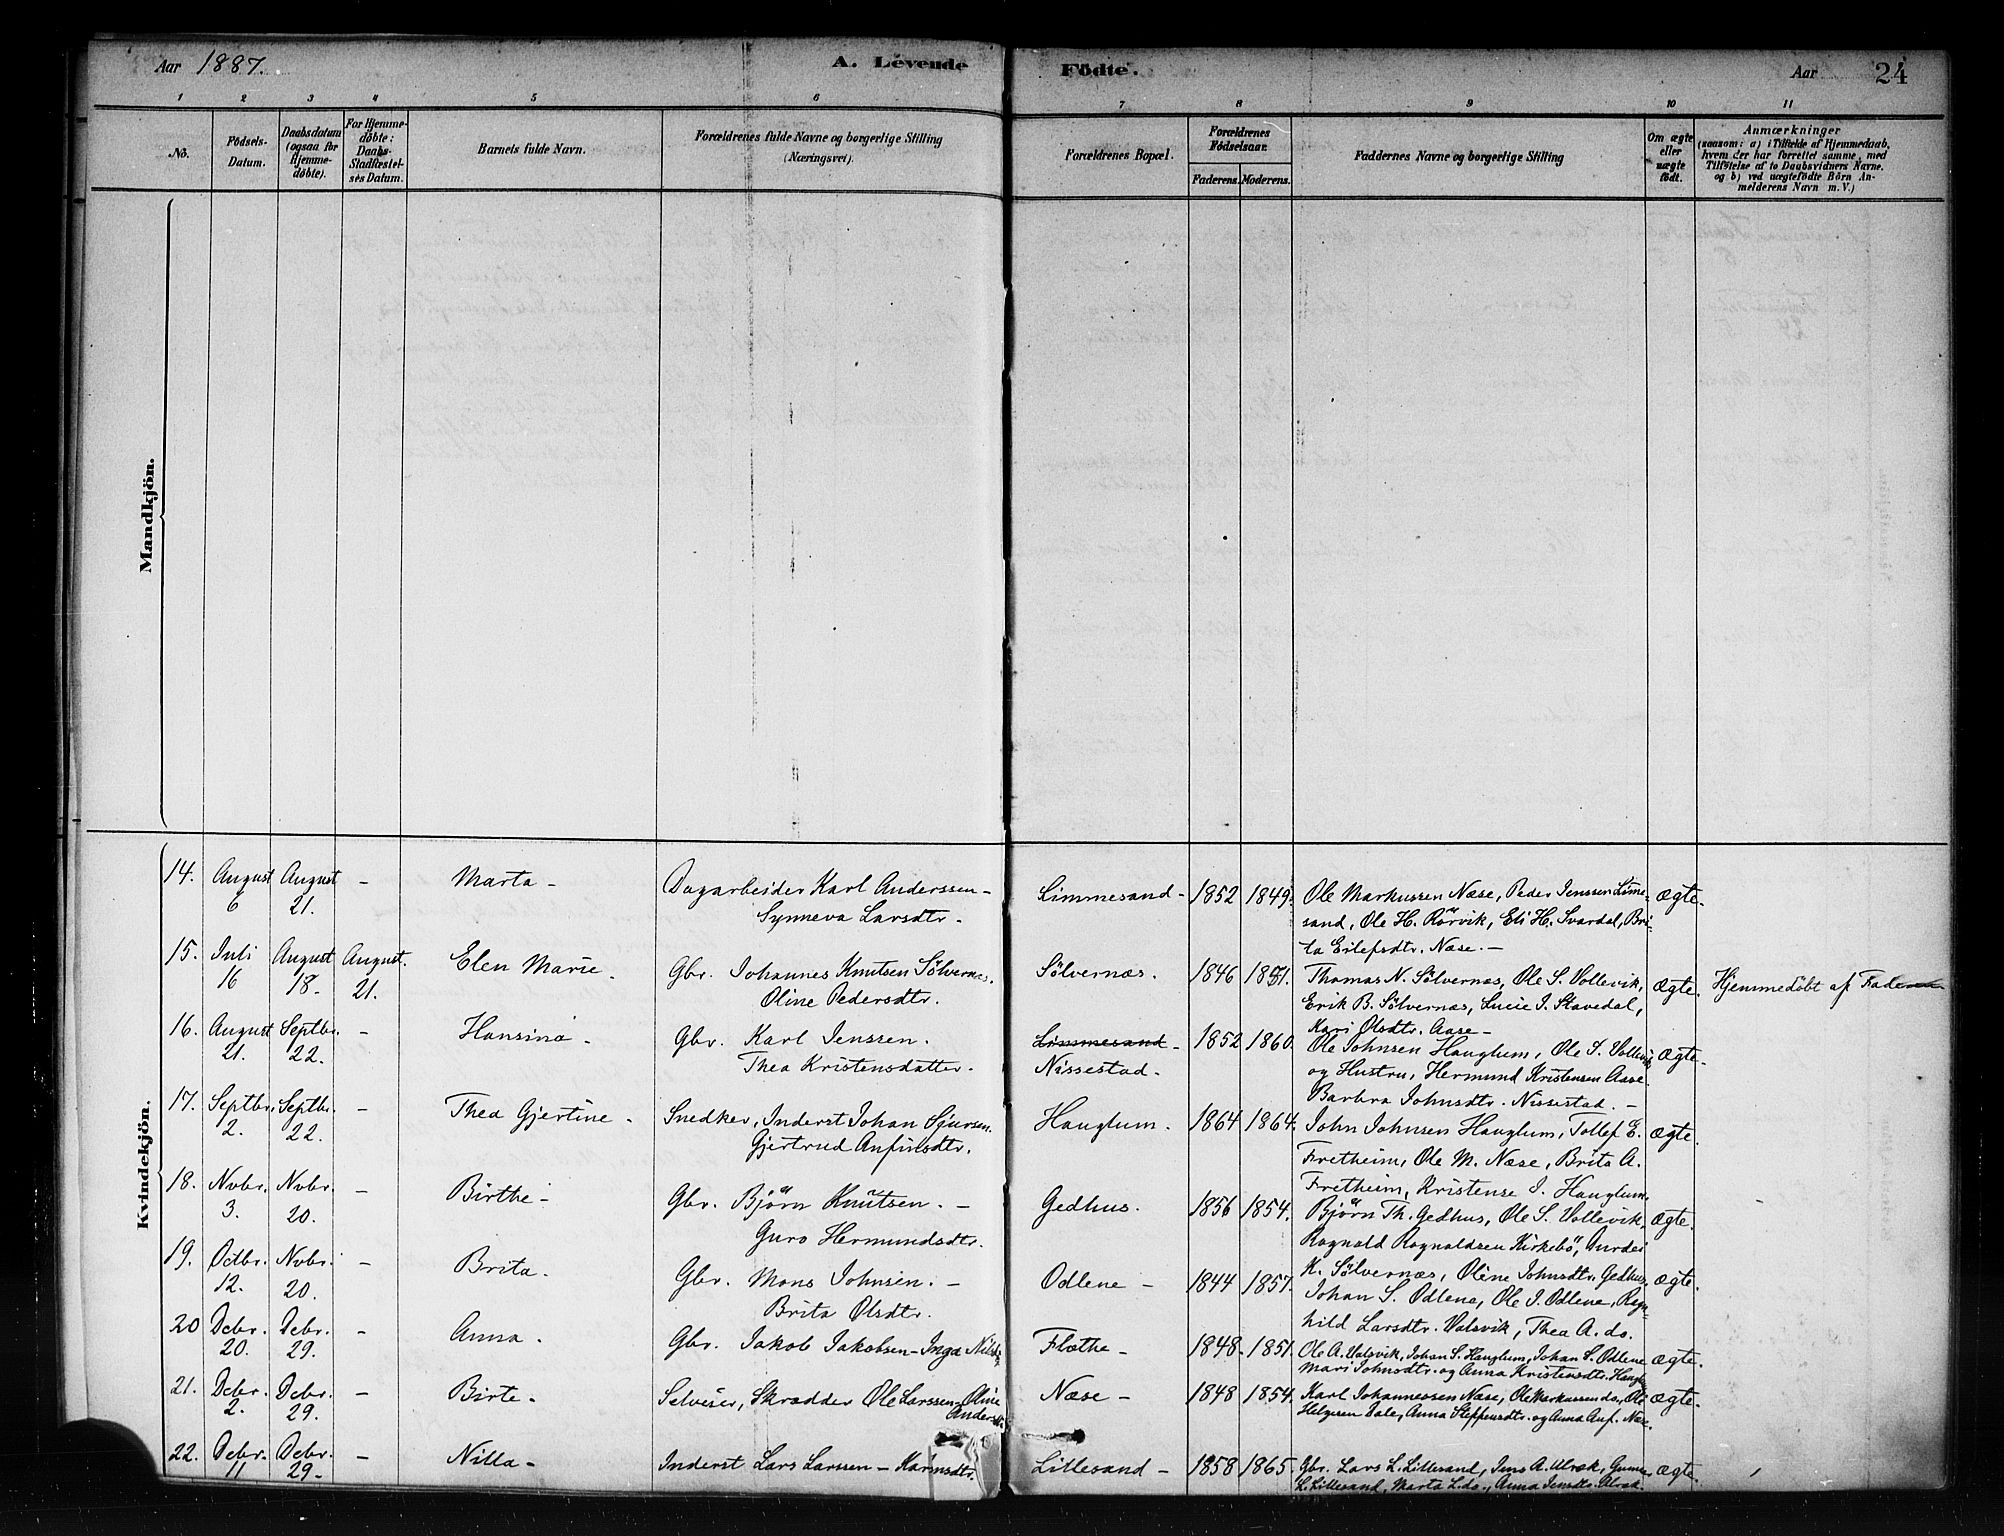 Aar 1887. A. Levende Födte. Aar 24
1 2 3 4 5 6 7 8 9 10 11
No.
Födsels-
Datum.
Daabsdatum
(ogsaa for
Hjemme-
döbte).
For Hjemme-
döbte:
Daabs-
Stadfæstel-
ses Datum.
Barnets fulde Navn.
Forældrenes fulde Navne og borgerlige Stilling
(Næringsvei).
Forældrenes Bopæl.
Forældrenes
Födselsaar.
Faderens. Moderens.
Faddernes Navne og borgerlige Stilling
Om ægte
eller
uægte
födt.
Anmærkninger
(saasom: a) i Tilfælde af Hjemmedaab,
hvem der har forrettet samme, med
Tilföielse af to Daabsvidners Navne.
og b) ved uægtefödte Börn An-
melderens Navn m. V.)
Mandkjön.
Kvindekjön.
14. August 6 August 21. - Marta - Dagarbeider Karl Anderssen - Synneva Larsdtr. - Limmesand - 1852 1849. Ole Markussen Næse, Peder Jenssen Lime-
sand, Ole H. Rörvik, Eli H. Svardal, Bri-
ta Eilefsdtr. Næse. - ægte.
15. Juli 16 August 18. August. 21. Elen Marie. Gbr. Johannes Knutsen Sölvernes.
Oline Pedersdtr. Sölvernæs. 1846 1851. Thomas N. Sölvernæs, Ole S. Vollevik,
Erik B. Sölvernæs, Lucie J. Stavedal,
Kari Olsdtr. Aase - ægte. Hjemmedöbt af Faderen
16. August 21. Septbr. 22. - Hansina - Gbr. Karl Jenssen.
Thea Kristensdatter. Limmesand -
Nissestad. 1852 1860. Ole Johnsen Hauglum, Ole S. Vollevik
og Hustru, Hermund Kristensen Aase
Barbra Johnsdtr. Nissestad. - ægte.
17. Septbr. 2. Septbr. 22. - Thea Gjertine - Snedker, Inderst Johan Sjursen.
Gjertrud Anfinsdtr. Hauglum. 1864 1864. John Johnsen Hauglum, Tollef E.
Fretheim, Ole M. Næse, Brita A.
Fretheim, Kristense J. Hauglum. ægte.
18. Nvbr. 3. Nvbr. 20. - Birthe - Gbr. Björn Knutsen. -
Guro Hermundsdtr. Gedhus. 1856 1854. Björn Th. Gedhus, Ole S. Vollevik,
Ragnald Ragnaldsen Kirkebö, Durdei
K. Sölvernæs, Oline Johnsdtr. Gedhus. ægte.
19. Octbr. 12. Nvbr. 20. - Brita. Gbr. Mons Johnsen. -
Brita Olsdtr. Odlene - 1844 1857. Johan S. Odlene, Ole J. Odlene, Ragn-
hild Larsdtr. Valsvik, Thea A. do. ægte
20 Debr. 20. Debr. 29. - Anna. Gbr. Jakob Jakobsen - Inga Nilsdtr Flæthe - 1848. 1851. Ole A. Valsvik, Johan S. Hauglum, Johan S. Odlene
Mari Johnsdtr. og Anna Kristensdtr. Hauglum ægte.
21. Debr. 2. Debr. 29. - Birte - Selveier, Skrædder Ole Larssen - Oline
Andersdtr. Næse - 1848 1854. Karl Johannessen Næse, Ole Markussen do, Ole
Helgesen Dale, Anna Steffensdtr. og Anna Anf. Næse. ægte.
22. Debr. 11 Debr. 29 - Nilla - Inderst Lars Larssen - Larsdtr. Lillesand - 1858 1865. Gbr. Lars L. Lillesand, Jens A. Ulræk,
L. Lillesand, Marta L. do., Anna Jensdtr. Ulræk. ægte.